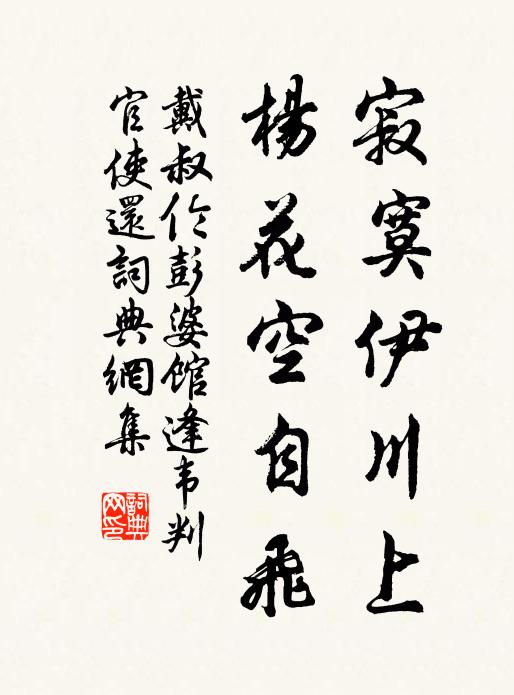 寂寞伊川上
楊花空自飛
戴叔伦彭婆館逢韦判
官使還詞典網集
詞典网印